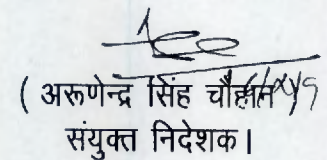 ( अरूणेन्द्र सिंह चौहान )
संयुक्त निदेशक।